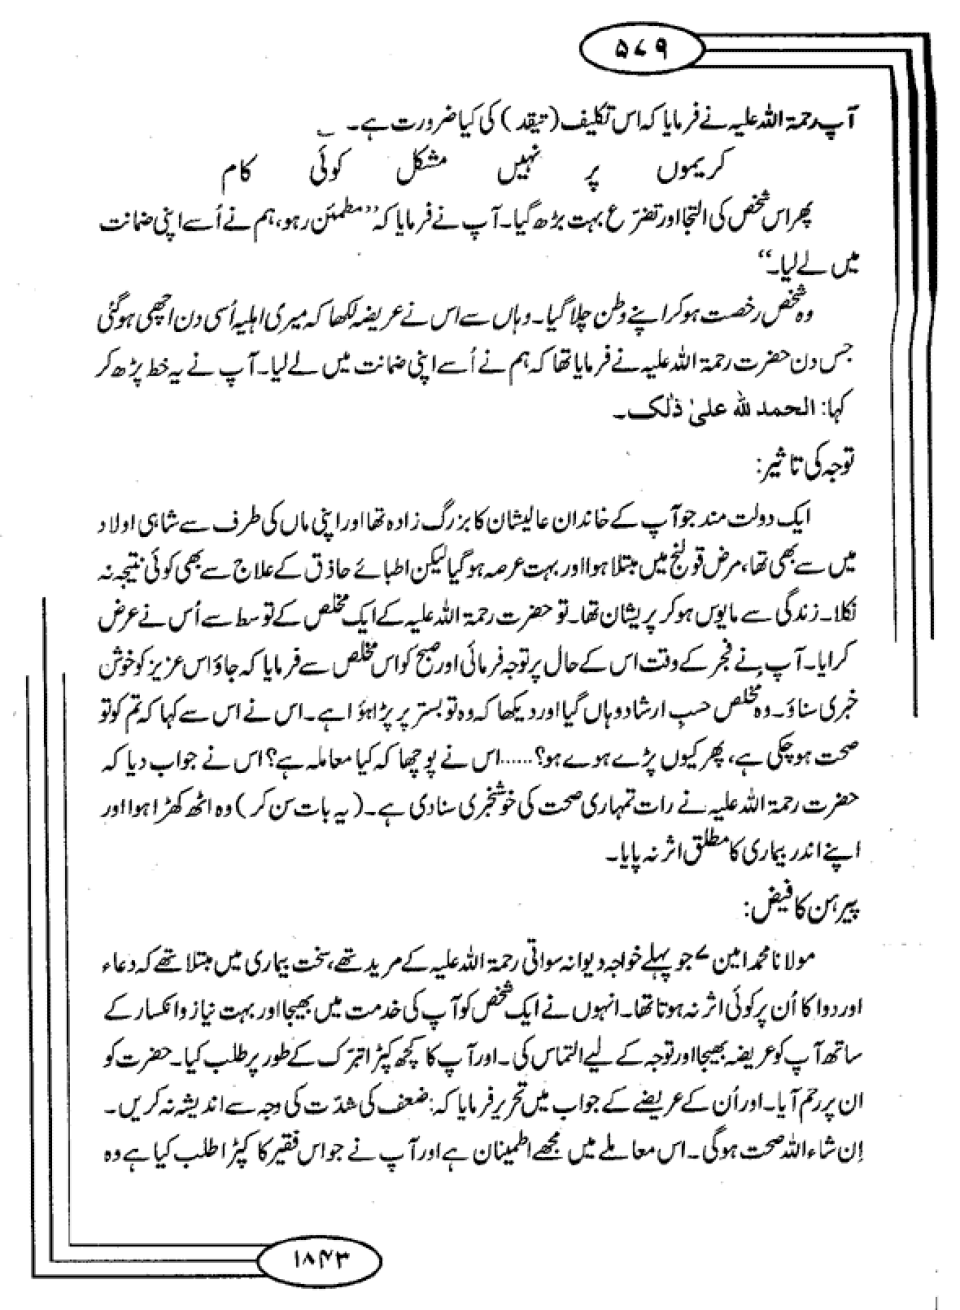 ۵۷۹
آپ رحمۃ اللہ علیہ نے فرمایا کہ اس تکلیف (تیقد) کی کیا ضرورت ہے۔ ؂
کریموں پر نہیں مشکل کوئی کام
پھر اس شخص کی التجا اور تضرّع بہت بڑھ گیا۔ آپ نے فرمایا کہ ’’مطمئن رہو، ہم نے اُسے اپنی ضمانت
میں لے لیا۔‘‘
وہ شخص رخصت ہوکر اپنے وطن چلا گیا۔ وہاں سے اس نے عریضہ لکھا کہ میری اہلیہ اُسی دن اچھی ہوگئی
جس دن حضرت رحمۃ اللہ علیہ نے فرمایا تھا کہ ہم نے اُسے اپنی ضمانت میں لے لیا۔ آپ نے یہ خط پڑھ کر
کہا: الحمد للہ علیٰ ذٰلک۔
توجہ کی تاثیر:
ایک دولت مند جو آپ کے خاندان عالیشان کا بزرگ زادہ تھا اور اپنی ماں کی طرف سے شاہی اولاد
میں سے بھی تھا، مرض قولنج میں مبتلا ہوا اور بہت عرصہ ہوگیا لیکن اطبائے حاذق کے علاج سے بھی کوئی نتیجہ نہ
نکلا۔ زندگی سے مایوس ہوکر پریشان تھا۔ تو حضرت رحمۃ اللہ علیہ کے ایک مخلص کے توسط سے اُس نے عرض
کرایا۔ آپ نے فجر کے وقت اس کے حال پر توجہ فرمائی اور صبح کو اس مخلص سے فرمایا کہ جاؤ اس عزیز کو خوش
خبری سناؤ۔ وہ مخلص حسبِ ارشاد وہاں گیا اور دیکھا کہ وہ تو بستر پر پڑا ہؤا ہے۔ اس نے اس سے کہا کہ تم کو تو
صحت ہوچکی ہے، پھر کیوں پڑے ہوے ہو؟......اس نے پوچھا کہ کیا معاملہ ہے؟ اس نے جواب دیا کہ
حضرت رحمۃ اللہ علیہ نے رات تمہاری صحت کی خوشخبری سنادی ہے۔ (یہ بات سن کر) وہ اٹھ کھڑا ہوا اور
اپنے اندر بیماری کا مطلق اثر نہ پایا۔
پیرہن کا فیض:
مولانا محمد امین ۷ جو پہلے خواجہ دیوانہ سواتی رحمۃ اللہ علیہ کے مرید تھے، سخت بیماری میں مبتلا تھے کہ دعاء
اور دوا کا اُن پر کوئی اثر نہ ہوتا تھا۔ انہوں نے ایک شخص کو آپ کی خدمت میں بھیجا اور بہت نیاز و انکسار کے
ساتھ آپ کو عریضہ بھیجا اور توجہ کے لیے التماس کی۔ اور آپ کا کچھ کپڑا تبرّک کے طور پر طلب کیا۔ حضرت کو
ان پر رحم آیا۔ اور اُن کے عریضے کے جواب میں تحریر فرمایا کہ: ضعف کی شدّت کی وجہ سے اندیشہ نہ کریں۔
اِن شاء اللہ صحت ہوگی۔ اس معاملے میں مجھے اطمینان ہے اور آپ نے جو اس فقیر کا کپڑا طلب کیا ہے وہ
۱۸۴۳